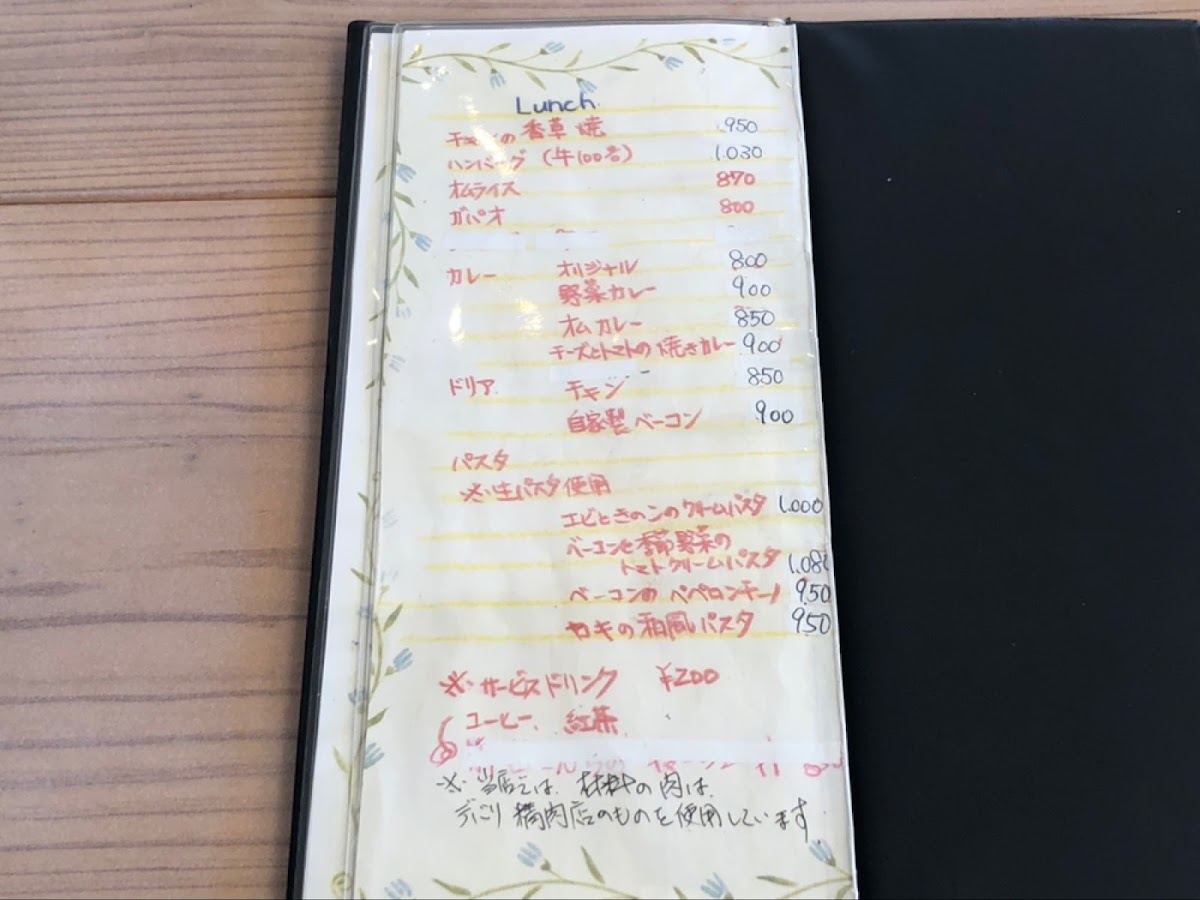 Lunch
チキンの香草焼 950
ハンバーグ (牛100%) 1.030
オムライス 870
ガパオ 800
カレー オリジナル 800
野菜カレー 900
オムカレー 850
チーズとトマトの焼きカレー 900
ドリア チキン 850
自家製ベーコン 900
パスタ
※生パスタ使用
エビときのこのクリームパスタ 1.000
ベーコンと季節野菜の
トマトクリームパスタ 1.08
ベーコンのペペロンチーノ 950
カキの和風パスタ 950
※サービスドリンク ¥200
コーヒー、紅茶
※当店では、材料の肉は、
精肉店のものを使用しています